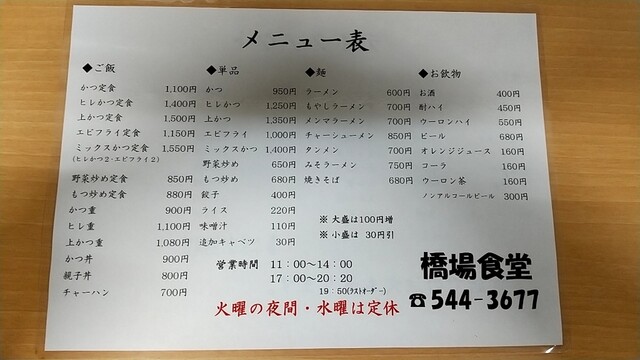 メニュー表
◆ご飯
かつ定食 1,100円
ヒレかつ定食 1,400円
上かつ定食 1,500円
エビフライ定食 1,150円
ミックスかつ定食 1,550円
(ヒレかつ2・エビフライ2)
野菜炒め定食 850円
もつ炒め定食 880円
かつ重 900円
ヒレ重 1,100円
上かつ重 1,080円
かつ丼 900円
親子丼 800円
チャーハン 700円
◆単品
かつ 950円
ヒレかつ 1,250円
上かつ 1,350円
エビフライ 1,000円
ミックスかつ 1,400円
野菜炒め 650円
もつ炒め 680円
餃子 400円
ライス 220円
味噌汁 110円
追加キャベツ 30円
◆麺
ラーメン 600円
もやしラーメン 700円
メンマラーメン 700円
チャーシューメン 850円
タンメン 700円
みそラーメン 750円
焼きそば 680円
◆お飲物
お酒 400円
酎ハイ 450円
ウーロンハイ 550円
ビール 680円
オレンジジュース 160円
コーラ 160円
ウーロン茶 160円
ノンアルコールビール 300円
※ 大盛は100円増
※ 小盛は 30円引
営業時間 11:00〜14:00
17:00〜20:20
19:50(ラストオーダー)
火曜の夜間・水曜は定休
橋場食堂
☎544-3677